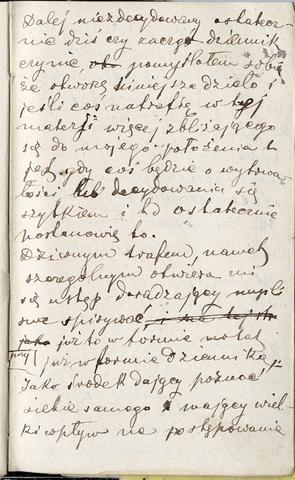 Dalej niezdecydowany ostatecz-
nie dziś czy zacząć dziennik
czy nie, pomyślałem sobie
że otworzę niniejsze dzieło i
jeśli coś natrafię w tej
materji więcej zbliżającego
się do mojego położenia to
jest gdy coś będzie o wytrwa-
łości lub decydowaniu się
szybkiem i to ostatecznie
postanowię to.
Dziwnym trafem, nawet
szczególnym otwiera mi
się ustęp doradzający myśli
swe spisywać, i na
jako już to w formie notat
przy już w formie dziennika,
jako środek dający poznać
siebie samego i mający wiel-
ki wpływ na postępowanie